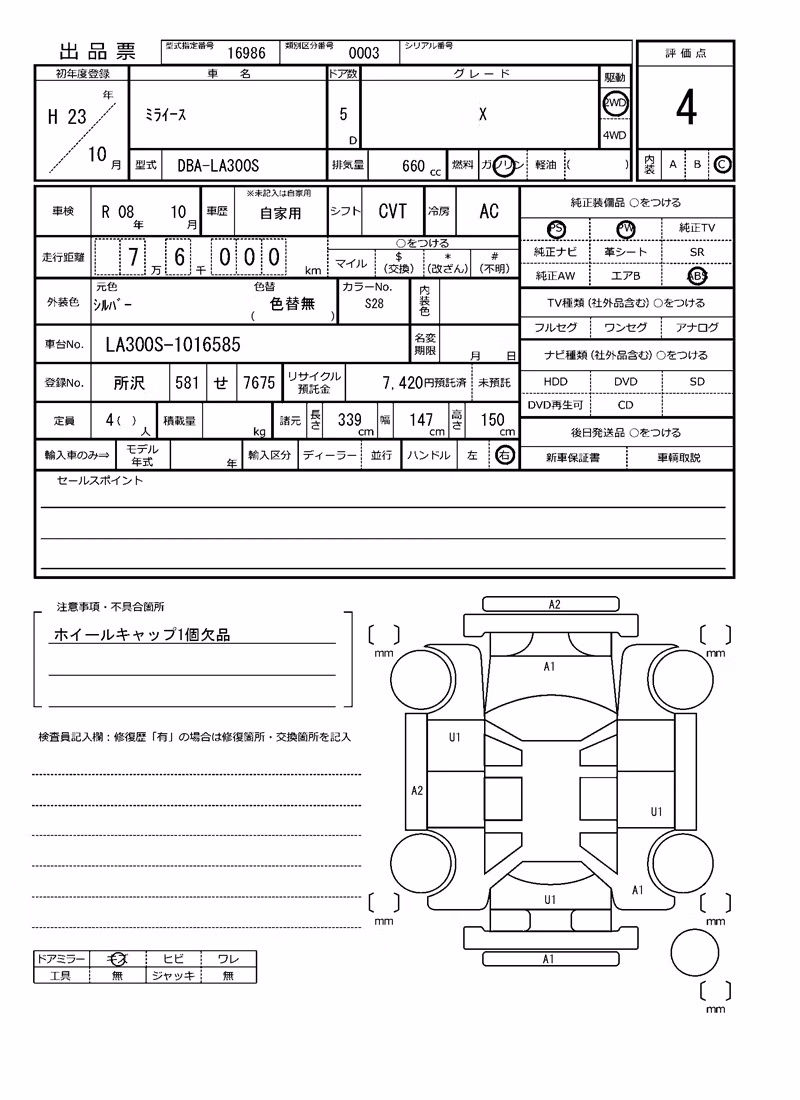 出品票 型式指定番号 16986 類別区分番号 0003 シリアル番号
評価点
4
内装 A B C
初年度登録 車名 ドア数 グレード 駆動
H 23 年 ミライース 5 D X 2WD
4WD
10 月 型式 DBA-LA300S 排気量 660 cc 燃料 ガソリン 軽油 ( )
※未記入は自家用
車検 R 08 年 10 月 車歴 自家用 シフト CVT 冷房 AC
走行距離 7 万 6 千 0 0 0 km
○をつける
マイル $ (交換) * (改ざん) # (不明)
外装色 元色 シルバー 色替 ( 色替無 ) カラーNo. S28 内装色
車台No. LA300S-1016585 名変期限 月 日
登録No. 所沢 581 せ 7675 リサイクル預託金 7,420円預託済 未預託
定員 4( ) 人 積載量 kg 諸元 長さ 339 cm 幅 147 cm 高さ 150 cm
輸入車のみ⇒ モデル年式 年 輸入区分 ディーラー 並行 ハンドル 左 右
純正装備品 ○をつける
PS PW 純正TV
純正ナビ 革シート SR
純正AW エアB ABS
TV種類 (社外品含む) ○をつける
フルセグ ワンセグ アナログ
ナビ種類 (社外品含む) ○をつける
HDD DVD SD
DVD再生可 CD
後日発送品 ○をつける
新車保証書 車輌取説
セールスポイント
注意事項・不具合箇所
ホイールキャップ1個欠品
検査員記入欄：修復歴「有」の場合は修復箇所・交換箇所を記入
ドアミラー キズ ヒビ ワレ
工具 無 ジャッキ 無
A2
mm mm
A1
U1
A2
U1
A1
U1
mm mm
A1
mm